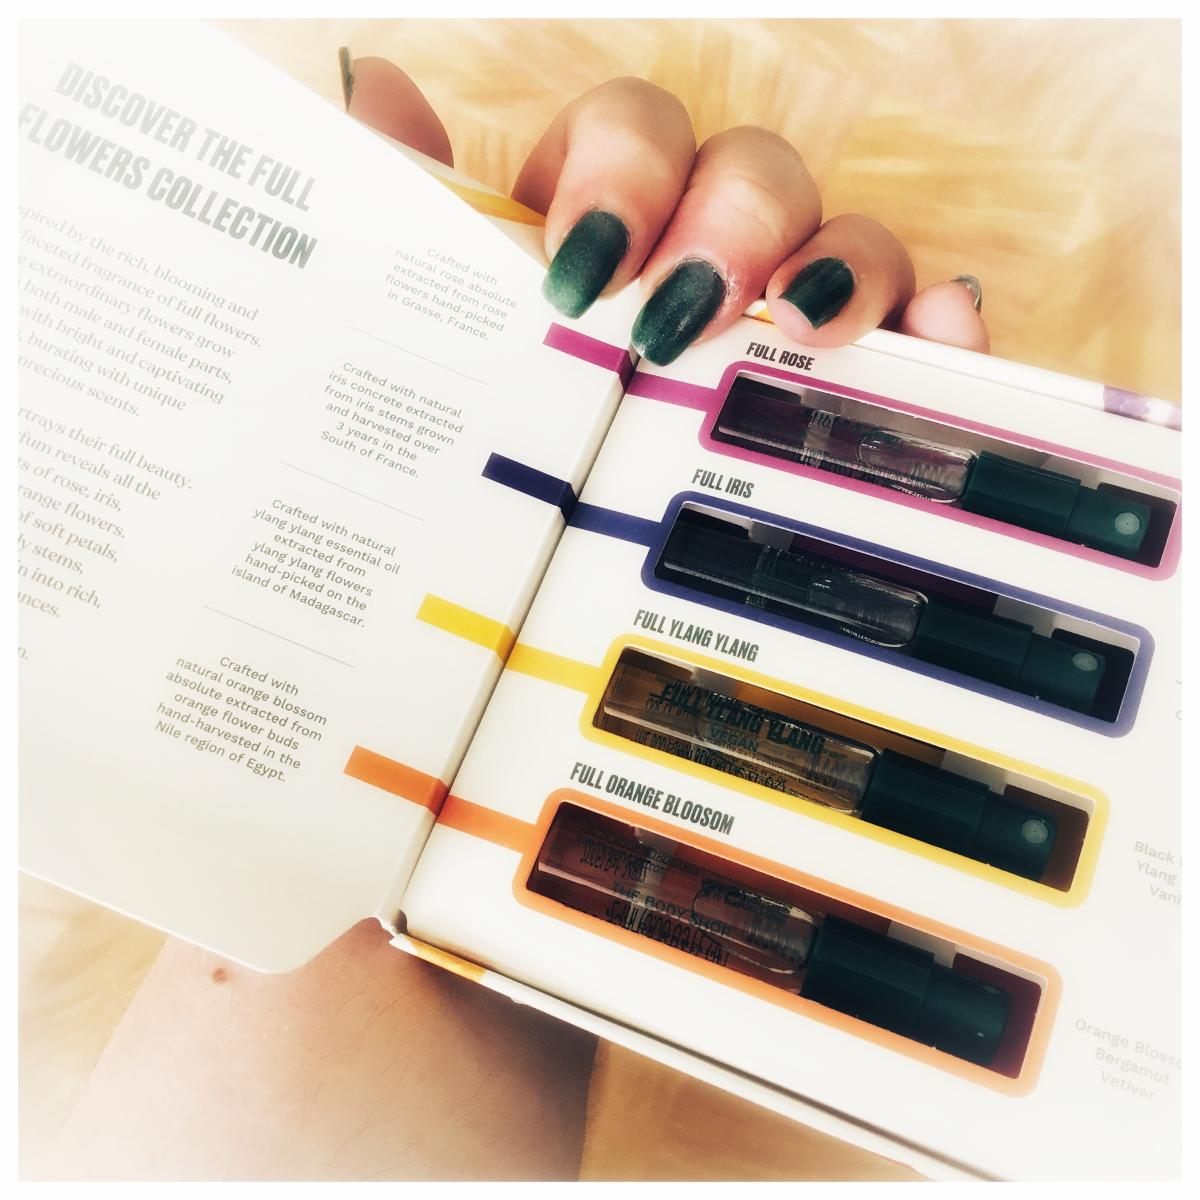 DISCOVER THE FULL
FLOWERS COLLECTION
by the rich, blooming and
fragrance of full flowers.
extraordinary flowers grow
both male and female parts,
with bright and captivating
bursting with unique
precious scents.
their full beauty.
reveals all the
of rose, iris,
flowers.
of soft petals,
stems,
into rich,
Crafted with
natural rose absolute
extracted from rose
flowers hand-picked
in Grasse, France.
Crafted with natural
iris concrete extracted
from iris stems grown
and harvested over
3 years in the
South of France.
Crafted with natural
ylang ylang essential oil
extracted from
ylang ylang flowers
hand-picked on the
island of Madagascar.
Crafted with
natural orange blossom
absolute extracted from
orange flower buds
hand-harvested in the
Nile region of Egypt.
FULL ROSE
FULL IRIS
FULL YLANG YLANG
FULL YLANG YLANG
VEGAN
Black
Ylang
FULL ORANGE BLOOSOM
THE BODY SHOP
Orange
Bergamot
Vetiver